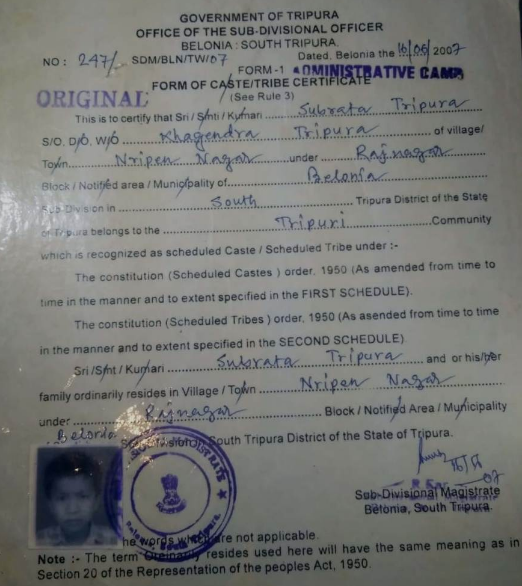 GOVERNMENT OF TRIPURA
OFFICE OF THE SUB-DIVISIONAL OFFICER
BELONIA : SOUTH TRIPURA.
NO : 247/- SDM/BLN/TW/07 Dated, Belonia the 16/06/2007
FORM-1 ADMINISTRATIVE CAMP
FORM OF CASTE/TRIBE CERTIFICATE
ORIGINAL (See Rule 3)
This is to certify that Sri / Smti / Kumari Subrata Tripura
S/O. D/O. W/O Khagendra Tripura of village/
Town Nripen Nagar under Rajnagar
Block / Notified area / Municipality of Belonia
Sub-Division in South Tripura District of the State
of Tripura belongs to the Tripuri Community
which is recognized as scheduled Caste / Scheduled Tribe under :-
The constitution (Scheduled Castes ) order, 1950 (As amended from time to
time in the manner and to extent specified in the FIRST SCHEDULE).
The constitution (Scheduled Tribes ) order, 1950 (As asended from time to time
in the manner and to extent specified in the SECOND SCHEDULE)
Sri /Smt / Kumari Subrata Tripura and or his/her
family ordinarily resides in Village / Town Nripen Nagar
under Rajnagar Block / Notified Area / Municipality
Sub-Division in South Tripura District of the State of Tripura.
Sub-Divisional Magistrate
Belonia, South Tripura
he words which are not applicable.
Note :- The term Ordinarily resides used here will have the same meaning as in
Section 20 of the Representation of the peoples Act, 1950.